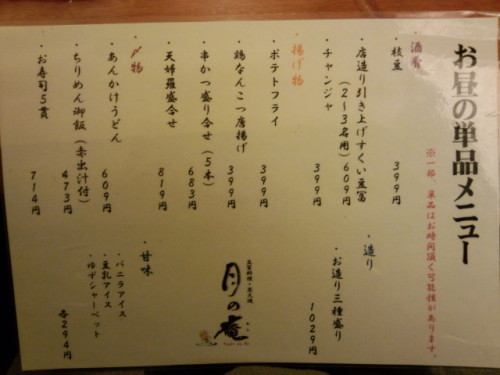 お昼の単品メニュー
※一部、単品はお時間頂く可能性があります。
・酒肴
・枝豆 399円
・店造り引き上げすくい豆富(2~3名用) 609円
・チャンジャ 399円
・造り
・お造り三種盛り 1029円
・揚げ物
・ポテトフライ 399円
・鶏なんこつ唐揚げ 399円
・串かつ盛り合せ(5本) 683円
・天婦羅盛合せ 819円
・〆物
・あんかけうどん 609円
・ちりめん御飯(赤出汁付) 473円
・お寿司5貫 714円
・甘味
・バニラアイス
・豆乳アイス
・ゆずシャーベット
各294円
月の庵